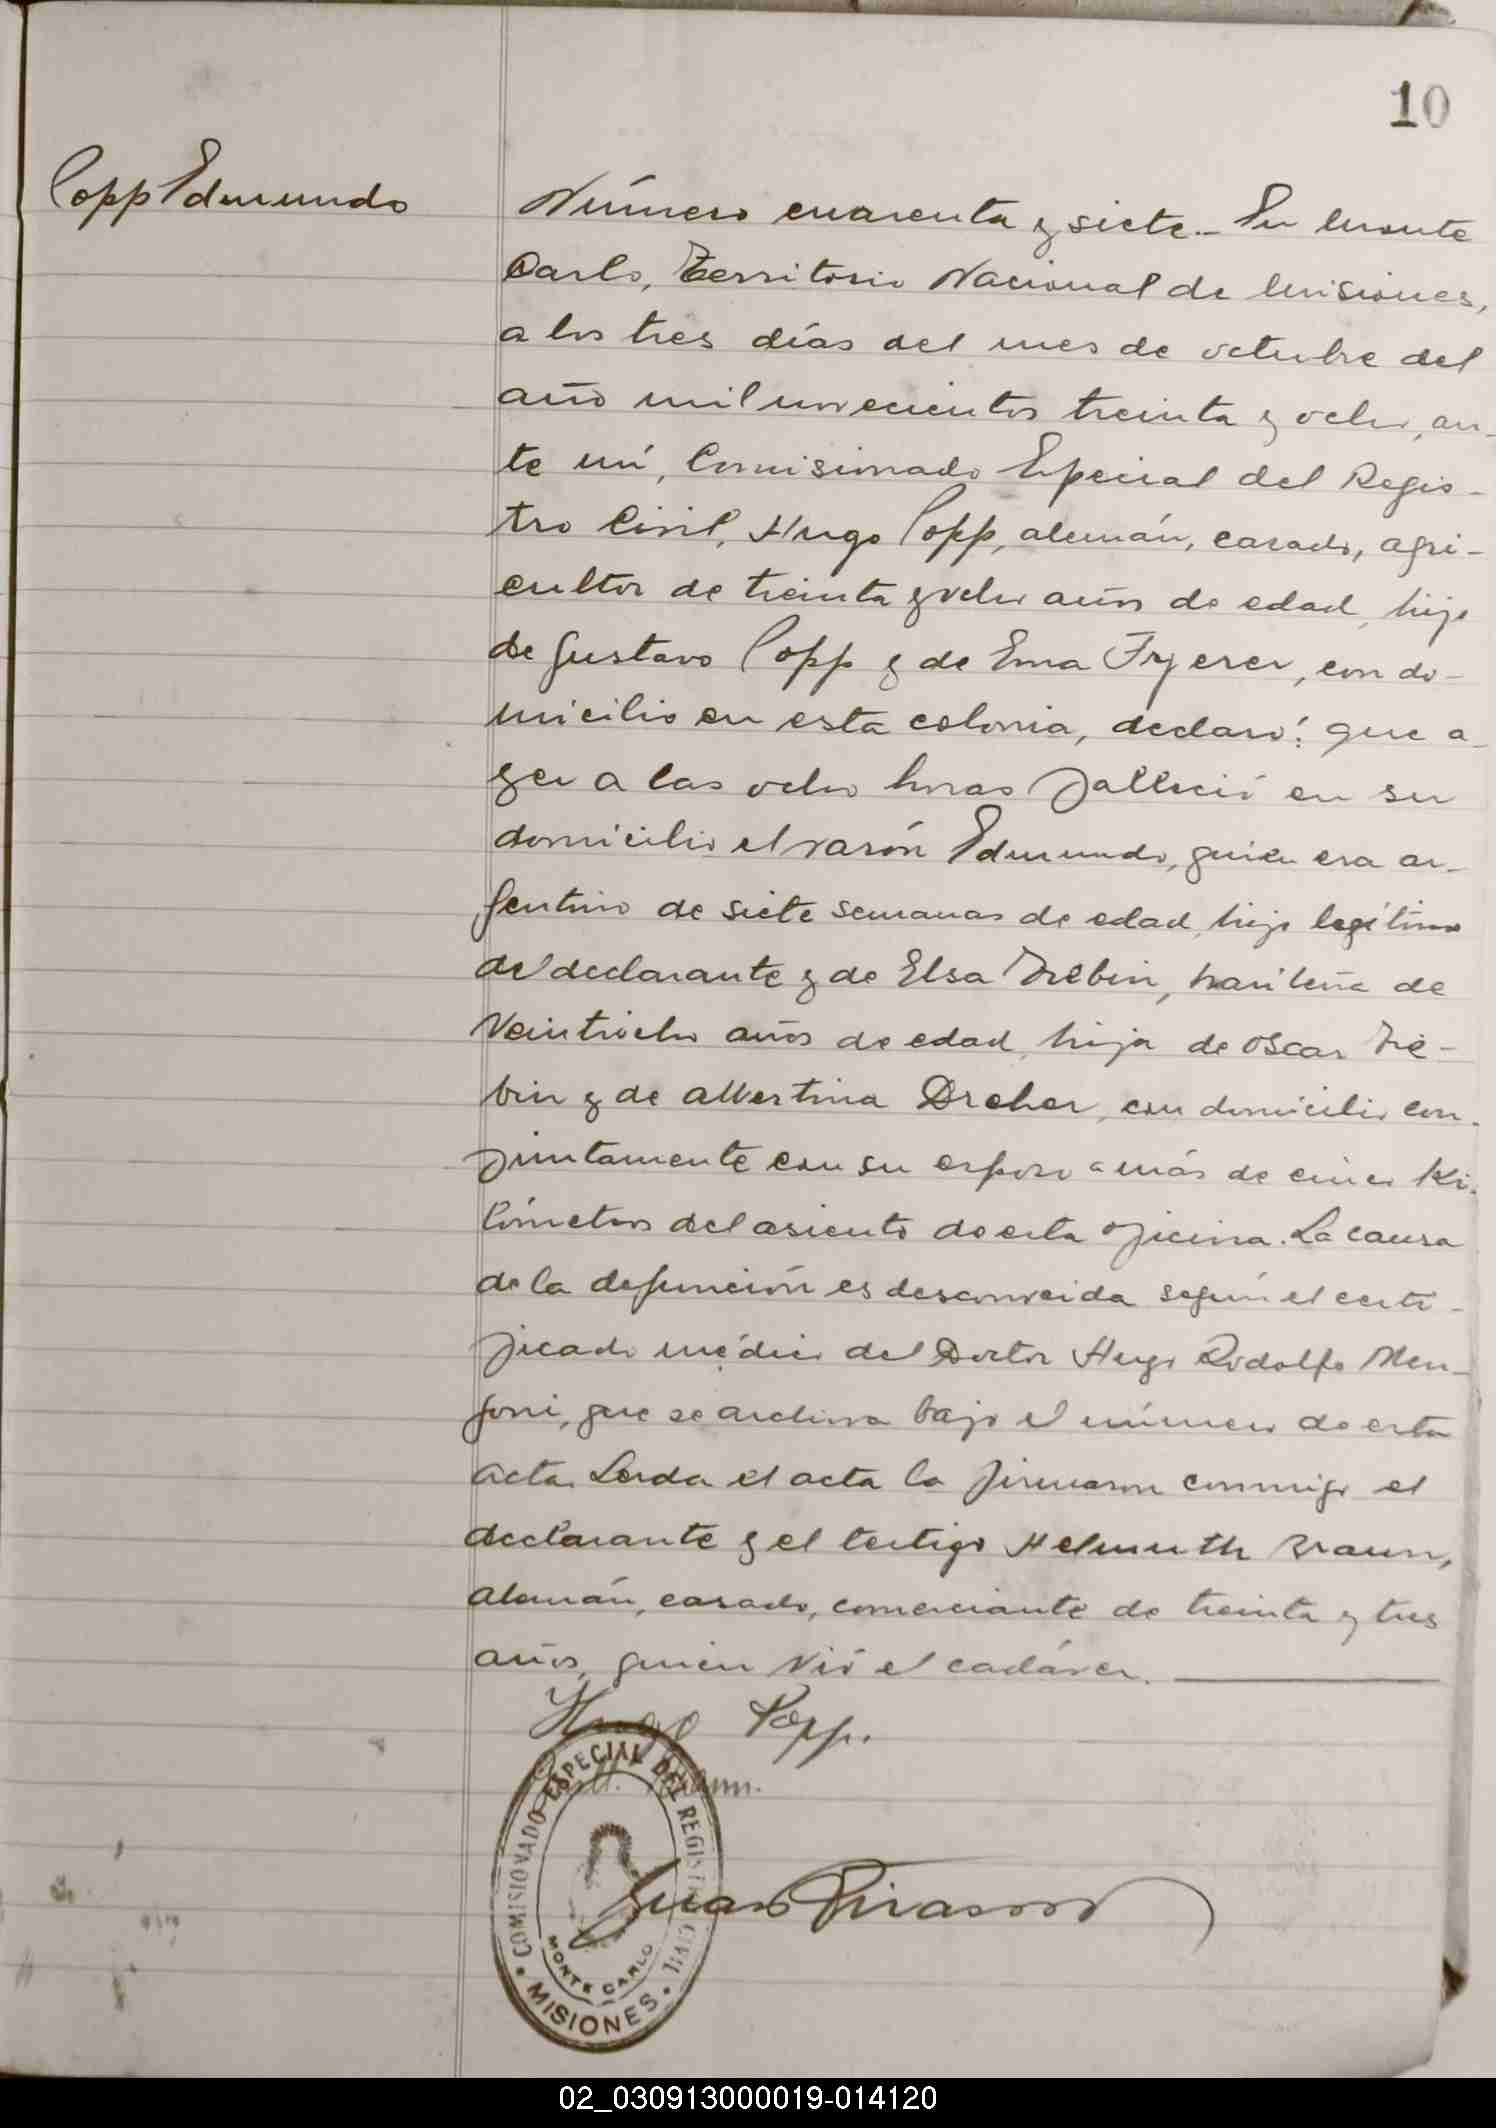 10
Popp Edmundo
Número cuarenta y siete.- En Monte
Carlo, Territorio Nacional de Misiones,
a los tres días del mes de octubre del
año mil novecientos treinta y ocho, an-
te mí, Comisionado Especial del Regis-
tro Civil, Hugo Popp, alemán, casado, agri-
cultor de treinta y ocho años de edad, hijo
de Gustavo Popp y de Ema, con do-
micilio en esta colonia, declaró: que a-
yer a las ocho horas falleció en su
domicilio el varón Edmundo, quien era ar-
gentino de siete semanas de edad, hijo legítimo
del declarante y de Elsa Trebin, brasileña de
veintiocho años de edad, hija de Oscar Tre-
bin y de Albertina Dreher, con domicilio con-
juntamente con su esposo a más de cinco ki-
lómetros del asiento de esta oficina. La causa
de la defunción es desconocida según el certi-
ficado médico del Doctor Hugo Rodolfo Men-
goni, que se archiva bajo el número de esta
acta. Leida el acta la firmaron conmigo el
declarante y el testigo Helmuth Braun,
alemán, casado, comerciante de treinta y tres
años, quien vió el cadáver.
Hugo Popp.
COMISIONADO ESPECIAL DEL REGISTRO CIVIL
MONTE CARLO
MISIONES
Juan
02_030913000019-014120